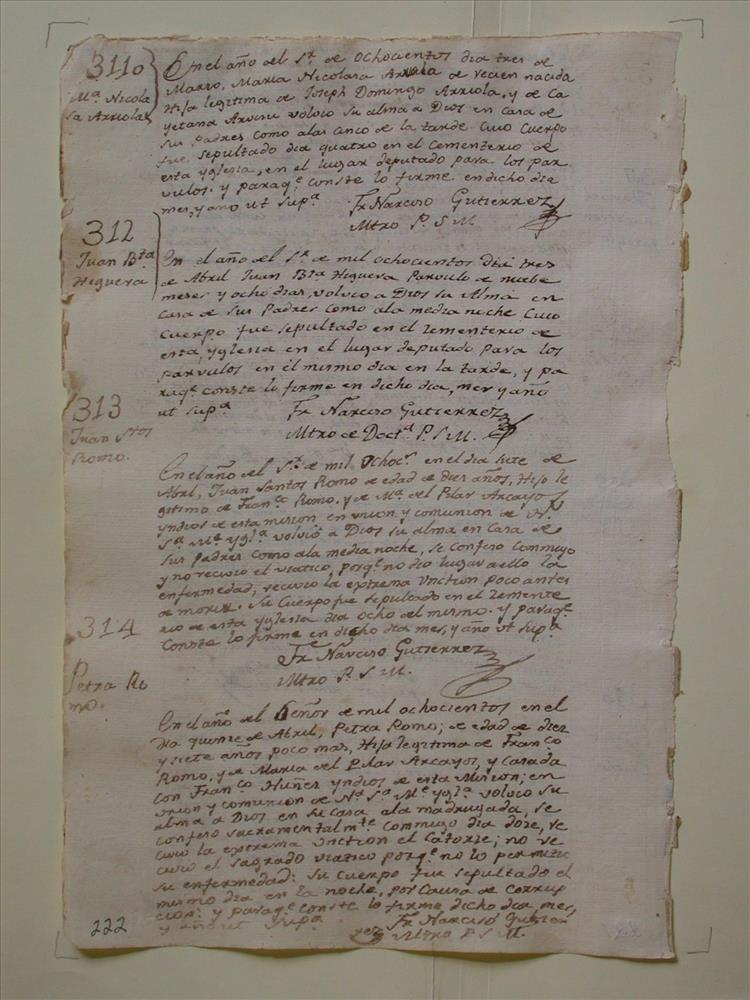 311o
Mª Nicola
sa Arriola
En el año del Sr. de ochocientos dia tres de
Marzo, Maria Nicolasa Arriola de recien nacida
Hija legitima de Joseph Domingo Arriola, y de Ca
yetana volvio su alma a Dios en casa de
sus Padres como alas cinco de la tarde. Cuio Cuerpo
fue sepultado dia quatro en el Cementerio de
esta yglesia, en el lugar deputado para los par
vulos. y paraq.e conste lo firme en dicho dia
mes, y año ut supª
Fr Narciso Gutierrez
Mtro P. S M
312
Juan Bta
Higuera
En el año del Sr. de mil ochocientos dia tres
de Abril Juan Bta Higuera Parvulo de nuebe
meses y ocho dias, volvio a Dios su Alma en
casa de sus Padres como ala media noche Cuio
Cuerpo fue sepultado en el Zementerio de
esta yglesia en el lugar deputado para los
parvulos en el mismo dia en la tarde, y pa
raq.e conste lo firme en dicho dia, mes, y año
ut supª
Fr Narciso Gutierrez
Mtro de Doctª P. S M.
313
Juan Stos
Romo.
En el año del Sr. de mil ochocs. en el dia siete de
Abril, Juan Santos Romo de edad de diez años, Hijo le
gitimo de Franco Romo, y de Mª del Pilar Arcayos
yndios de esta mision en union y comunion de N.
Sª Me yglª volvio a Dios su alma en casa de
sus Padres como ala media noche, se confeso conmigo
y no recivio el viatico, porq.e no dio lugar a ello la
enfermedad, recivio la extrema unction poco antes
de morir. Su Cuerpo fue sepultado en el Zemente
rio de esta yglesia dia ocho del mismo. y paraq.e
conste lo firme en dicho dia mes, y año ut supª
Fr Narciso Gutierrez
Mtro P. S M.
314
Petra Ro
mo.
En el año del Señor de mil ochocientos en el
dia quinze de Abril, Petra Romo; de edad de diez
y siete años poco mas, Hija legitima de Franco
Romo, y de Maria del Pilar Arcayos, y casada
con Franco Nuñes yndios de esta Mision; en
union y comunion de Nª Sª Me yglª volvio su
alma a Dios en su casa ala madrugada, se
confeso sacramentalmte conmigo dia doze, re
civio la extrema unction el Catorze; no re
civio el sagrado viatico porq.e no lo permitio
su enfermedad: su cuerpo fue sepultado el
mismo dia en la noche, por causa de corrup
cion: y paraq.e conste lo firme dicho dia, mes,
y año ut supª
Fr Narciso Gutier
rez Mtro P. S M.
222